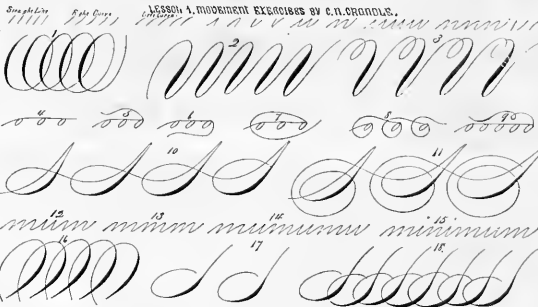 Straight Line Right Curve Left Curve LESSON 1, MOVEMENT EXERCISES BY C.N.CRANDLE.
1 2 3
4 5 6 7 8 9
10 11
12 13 14 15
mum mmm mumumum minimum
16 17 18